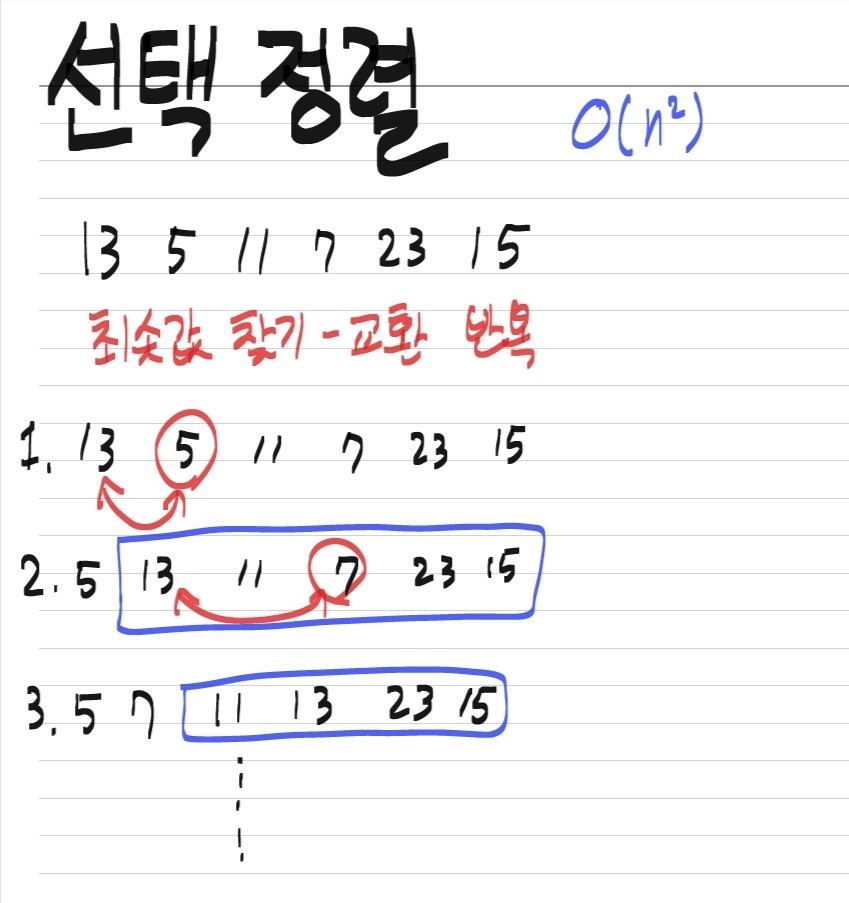 선택 정렬
O(n²)
13 5 11 7 23 15
최솟값 찾기 - 교환 반복
1. 13 5 11 7 23 15
2. 5 13 11 7 23 15
3. 5 7 11 13 23 15